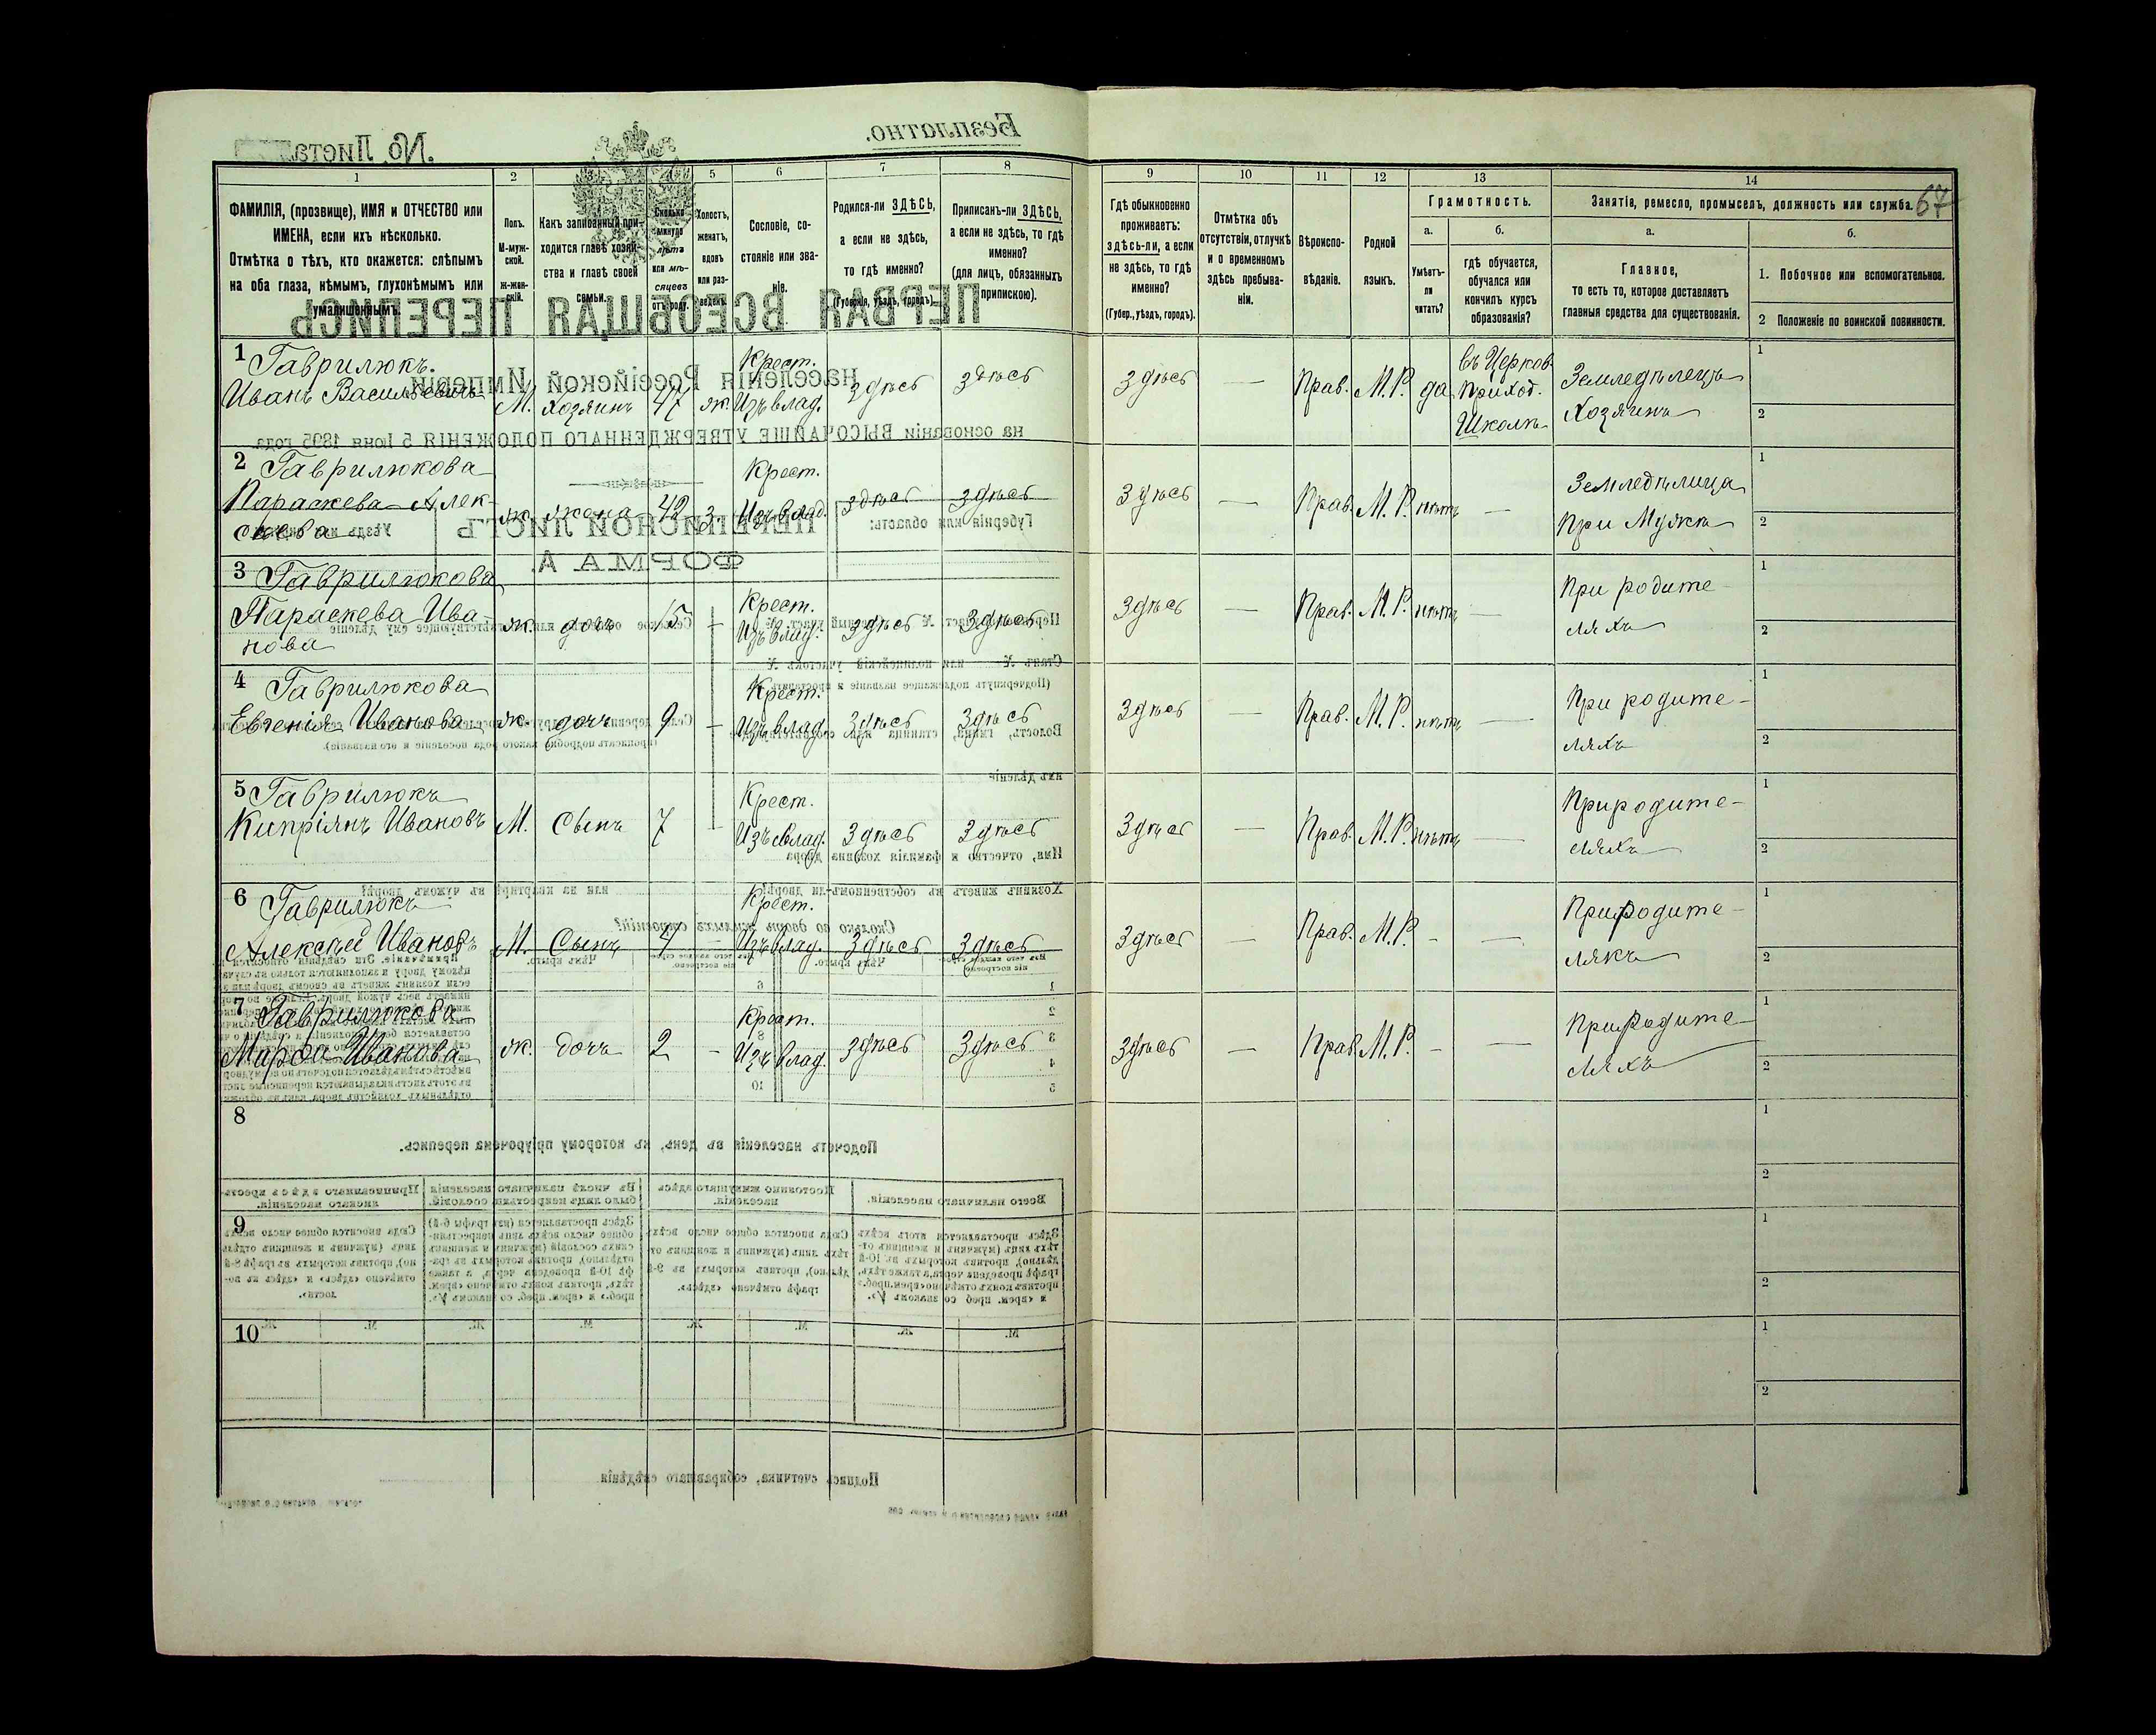 Безплатно.
№ Листа
67
1 2 5 6 7 8 9 10 11 12 13 14
ФАМИЛІЯ, (прозвище), ИМЯ и ОТЧЕСТВО или
ИМЕНА, если ихъ нѣсколько.
Отмѣтка о тѣхъ, кто окажется: слѣпымъ
на оба глаза, нѣмымъ, глухонѣмымъ или
умалишеннымъ.
Полъ.
М-муж-
ской.
Ж-жен-
скій.
Какъ записанный при-
ходится главѣ хозяй-
ства и главѣ своей
семьи.
Сколько
минуло
лѣтъ
или мѣ-
сяцевъ
отъ роду.
Холостъ,
женатъ,
вдовъ
или раз-
веденъ.
Сословіе, со-
стояніе или зва-
ніе.
Родился-ли ЗДѢСЬ,
а если не здѣсь,
то гдѣ именно?
(Губернія, уѣздъ, городъ).
Приписанъ-ли ЗДѢСЬ,
а если не здѣсь, то гдѣ
именно?
(для лицъ, обязанныхъ
припискою).
Гдѣ обыкновенно
проживаетъ:
здѣсь-ли, а если
не здѣсь, то гдѣ
именно?
(Губер., уѣздъ, городъ).
Отмѣтка объ
отсутствіи, отлучкѣ
и о временномъ
здѣсь пребыва-
ніи.
Вѣроиспо-
вѣданіе.
Родной
языкъ.
Грамотность.
а.
Умѣетъ-
ли
читать?
б.
гдѣ обучается,
обучался или
кончилъ курсъ
образованія?
Занятіе, ремесло, промыселъ, должность или служба.
а.
Главное,
то есть то, которое доставляетъ
главныя средства для существованія.
б.
1. Побочное или вспомогательное.
2 Положеніе по воинской повинности.
ПЕРВАЯ ВСЕОБЩАЯ ПЕРЕПИСЬ
населенія Россійской Имперіи
на основаніи ВЫСОЧАЙШЕ УТВЕРЖДЕННАГО ПОЛОЖЕНІЯ 5 Іюня 1895 года
ПЕРЕПИСНОЙ ЛИСТЪ
ФОРМА А.
Губернія или область:
1 Гаврилюкъ.
Иванъ Васильевичъ М. Хозяинъ 47 ж. Крест. Изъ влад. здѣсь здѣсь здѣсь — Прав. М.Р. да
въ Церков.
Приход.
Школѣ
Земледѣлецъ
Хозяинъ
1
2
2 Гаврилюкова
Параскева Алек-
сѣева ж. жена 42 з. Крест. Изъ влад. здѣсь здѣсь здѣсь — Прав. М.Р. нѣтъ —
Земледѣлица
При Мужѣ
1
2
3 Гаврилюкова
Параскева Ива-
нова ж. дочь 15 — Крест. Изъ влад. здѣсь здѣсь здѣсь — Прав. М.Р. нѣтъ —
При родите-
ляхъ
1
2
4 Гаврилюкова
Евгенія Иванова ж. дочь 9 — Крест. Изъ влад. здѣсь здѣсь здѣсь — Прав. М.Р. нѣтъ —
При родите-
ляхъ
1
2
5 Гаврилюкъ
Кипріянъ Ивановъ М. Сынъ 7 — Крест. Изъ влад. здѣсь здѣсь здѣсь — Прав. М.Р. нѣтъ —
При родите-
ляхъ
1
2
6 Гаврилюкъ
Алексѣй Ивановъ М. Сынъ 4 — Крест. Изъ влад. здѣсь здѣсь здѣсь — Прав. М.Р. - —
При родите-
ляхъ
1
2
7 Гаврилюкова
Марѳа Иванова ж. дочь 2 — Крест. Изъ влад. здѣсь здѣсь здѣсь — Прав. М.Р. - —
При Родите-
ляхъ
1
2
8
1
2
Подсчетъ населенія въ день, къ которому пріурочена перепись.
Всего наличнаго населенія.
Постоянно живущаго здѣсь
населенія.
В числѣ наличнаго населенія
было лицъ некрестьян. сословій.
Приписаннаго здѣсь кресть-
янскаго населенія.
9
1
2
10
М. Ж. М. Ж. М. Ж. М. Ж.
1
2
Подпись счетчика, собиравшаго свѣдѣнія